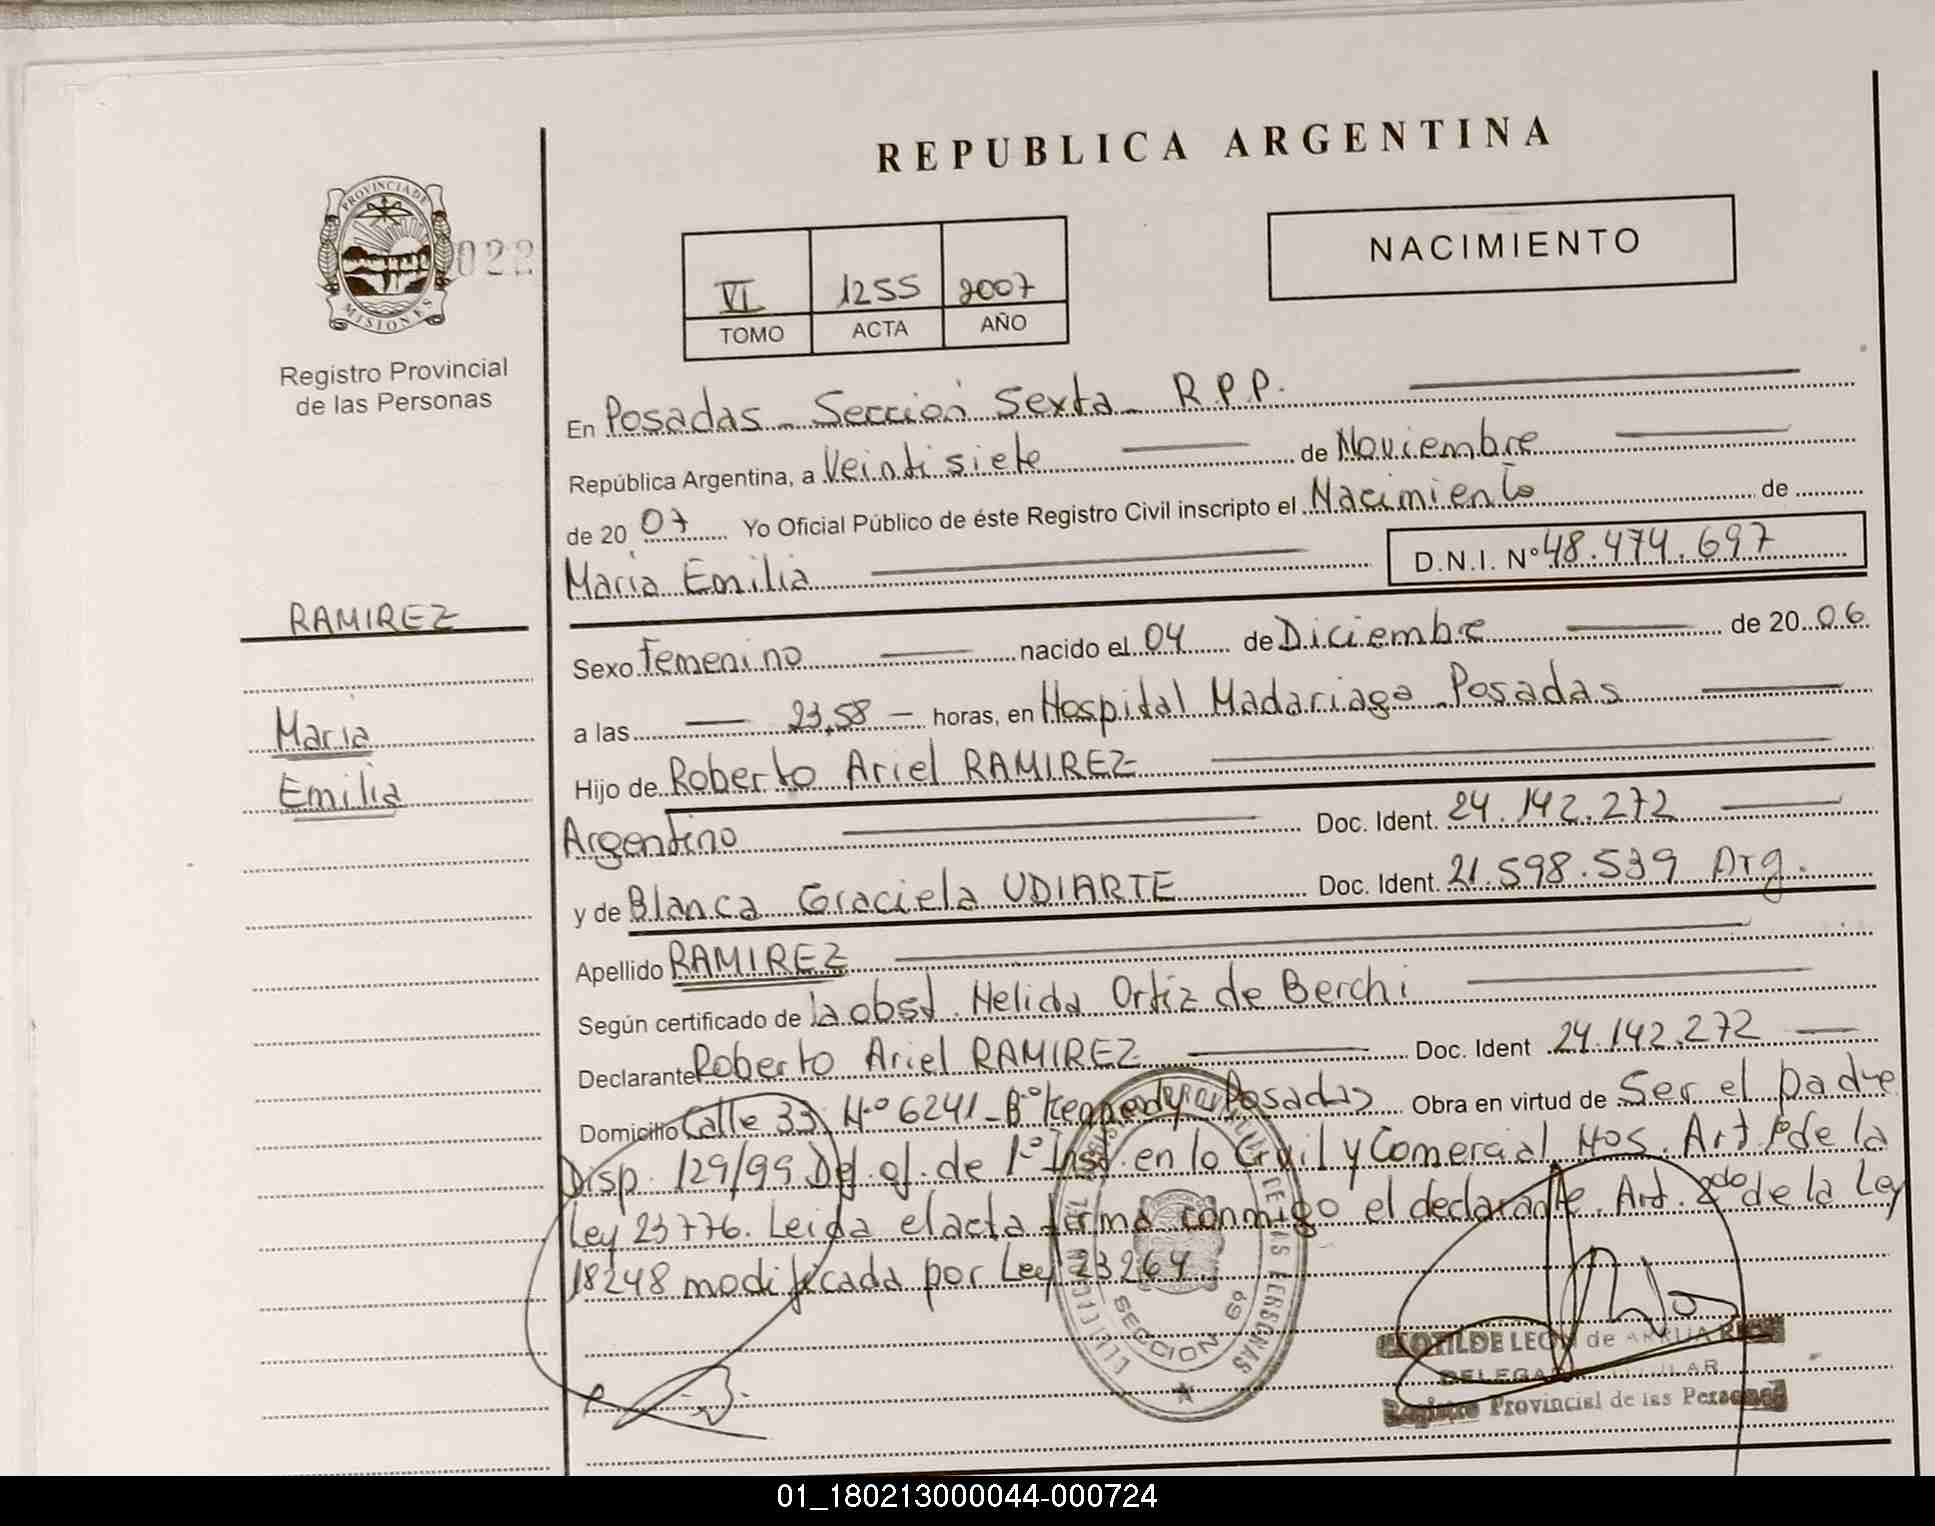 REPUBLICA ARGENTINA
PROVINCIA DE
MISIONES
022
Registro Provincial
de las Personas
VI 1255 2007
TOMO ACTA AÑO
NACIMIENTO
En Posadas - Sección Sexta - R.P.P.
República Argentina, a Veintisiete de Noviembre
de 2007 Yo Oficial Público de éste Registro Civil inscripto el Nacimiento de
María Emilia D.N.I. Nº 48.474.697
RAMIREZ
Maria
Emilia
Sexo Femenino nacido el 04 de Diciembre de 2006
a las 23,58 horas, en Hospital Madariaga - Posadas
Hijo de Roberto Ariel RAMIREZ
Argentino Doc. Ident. 24.142.272
y de Blanca Graciela UDIARTE Doc. Ident. 21.598.539 Arg.
Apellido RAMIREZ
Según certificado de la obst. Nelida Ortiz de Berchi
Declarante Roberto Ariel RAMIREZ Doc. Ident 24.142.272
Domicilio Calle 33 Nº 6241 - Bº Kennedy Posadas Obra en virtud de Ser el padre
Disp. 129/99 Def. of. de 1º Inst. en lo Civil y Comercial Nº5. Art 1º de la
Ley 23776. Leida el acta firma conmigo el declarante. Art. 2do de la Ley
18248 modificada por Ley 23264.
SECCION 6ª
DE LAS PERSONAS
CLOTILDE LEON de ARRUA
Registro Provincial de las Personas
01_180213000044-000724